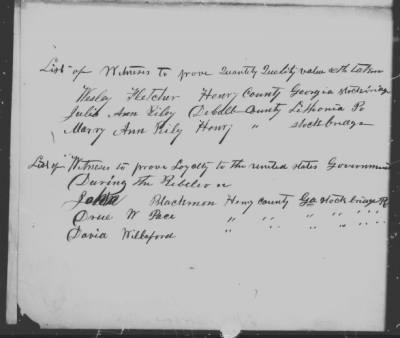 List of Witness to prove Quantity Quality value &c taken
Wesley Fletcher Henry County Georgia stockbridge
Julia Ann Kiley Debalb County Lithonia Po
Merry Ann Kily Henry " stockbridge
List of Witness to prove Loyalty to the united states Government
During the Rebelion
John Blackmon Henry County Ga stockbridge
Drue W Pace " " " " "
David Willaford " " " " "